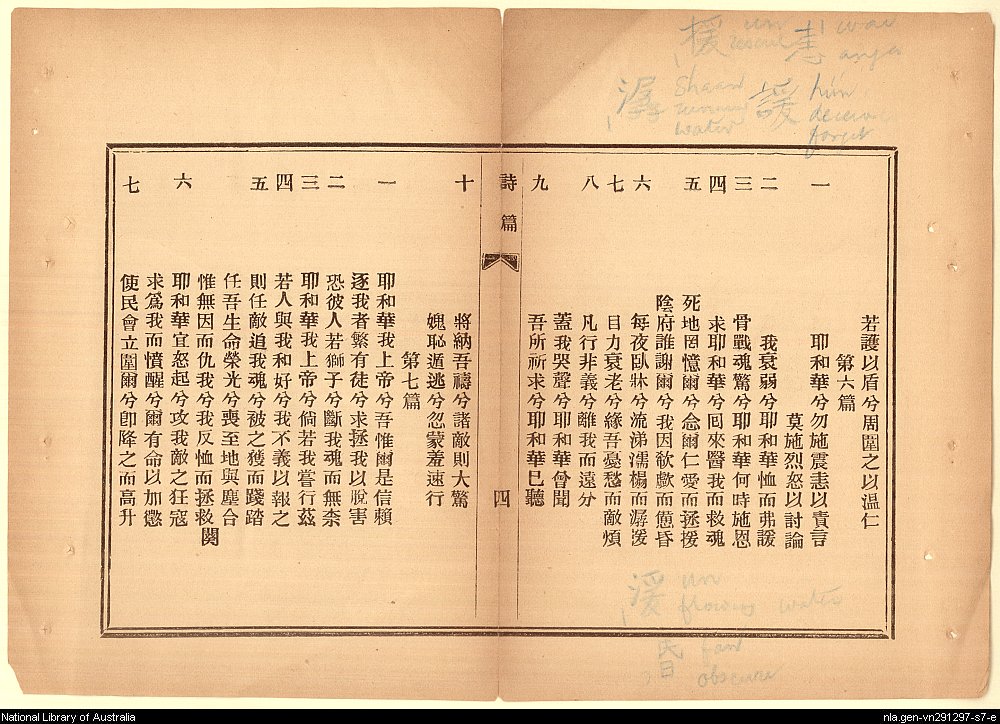 若護以盾兮周圍之以温仁
第六篇
一 耶和華兮勿施震恚以責言
莫施烈怒以討論
二 我衰弱兮耶和華恤而弗諼
三 骨戰魂驚兮耶和華何時施恩
四 求耶和華兮囘來醫我而救魂
五 死地罔憶爾兮念爾仁愛而拯援
陰府誰謝爾兮我因欷歔而惛昏
六 每夜臥牀兮流涕濡榻而潺湲
七 目力衰老兮緣吾憂愁而敵煩
八 凡行非義兮離我而遠分
蓋我哭聲兮耶和華曾聞
九 吾所祈求兮耶和華巳聽
詩篇
四
十 將納吾禱兮諸敵則大驚
媿恥遁逃兮忽蒙羞速行
第七篇
一 耶和華我上帝兮吾惟爾是信賴
逐我者繁有徒兮求拯我以脫害
二 恐彼人若獅子兮斷我魂而無柰
三 耶和華我上帝兮倘若我嘗行茲
四 若人與我和好兮我不義以報之
五 則任敵追我魂兮被之獲而踐踏
任吾生命榮光兮喪至地與塵合
惟無因而仇我兮我反恤而拯救闋
六 耶和華宜怒起兮攻我敵之狂寇
求爲我而憤醒兮爾有命以加懲
七 使民會立圍爾兮卽降之而高升
援 un rescue
恚 wai anger
潺 Shaan running water
諼 hün deceive forget
湲 un flowing water
昏 fan obscure
National Library of Australia
nla.gen-vn291297-s7-e